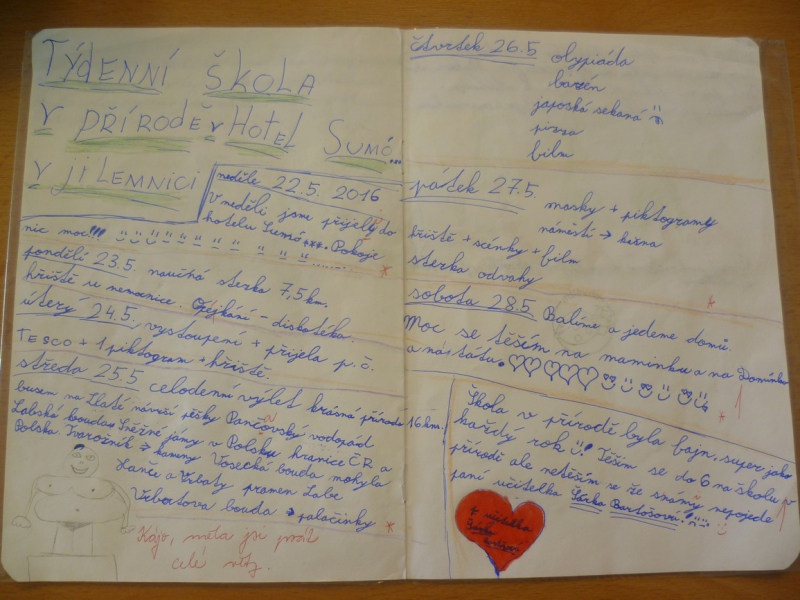 TÝDENNÍ ŠKOLA
V PŘÍRODĚ V HOTEL SUMÓ...
V JILEMNICI
neděle 22.5. 2016
V neděli jsme přijely do
hotelu Sumó***. Pokoje
nic moc!!!
pondělí 23.5. naučná sterka 7,5 km.
hřiště u nemocnice. - diskotéka.
úterý 24.5. vystoupení + přijela p. č.
TESCO + 1 piktogram + hřiště.
středa 25.5 celodenní výlet krásná příroda
busem na Zlaté návrší pěšky Pančavský vodopád 16 km.
Labská bouda Sněžné jámy v Polsku hranice ČR a
Polska Tvarožník → kameny Vosecká bouda mohyla
Hanče a Vrbaty pramen Labe
Vrbatova bouda → palačinky
Kájo, měla jsi psát
celé věty.
čtvrtek 26.5
olypiáda
bazén
japoská sekaná
pizza
film
pátek 27.5. masky + piktogramy
náměstí →
hřiště + scénky + film
sterka odvahy
sobota 28.5 Balíme a jedeme domů.
Moc se těším na maminku a na Dominku
a na tátu.
Škola v přírodě byla fajn, super jako
každý rok! Těším se do 6 na školu v
přírodě ale netěším se že snámy nepojede
paní učitelka Šárka Bartošová!
učitelka
Šárka